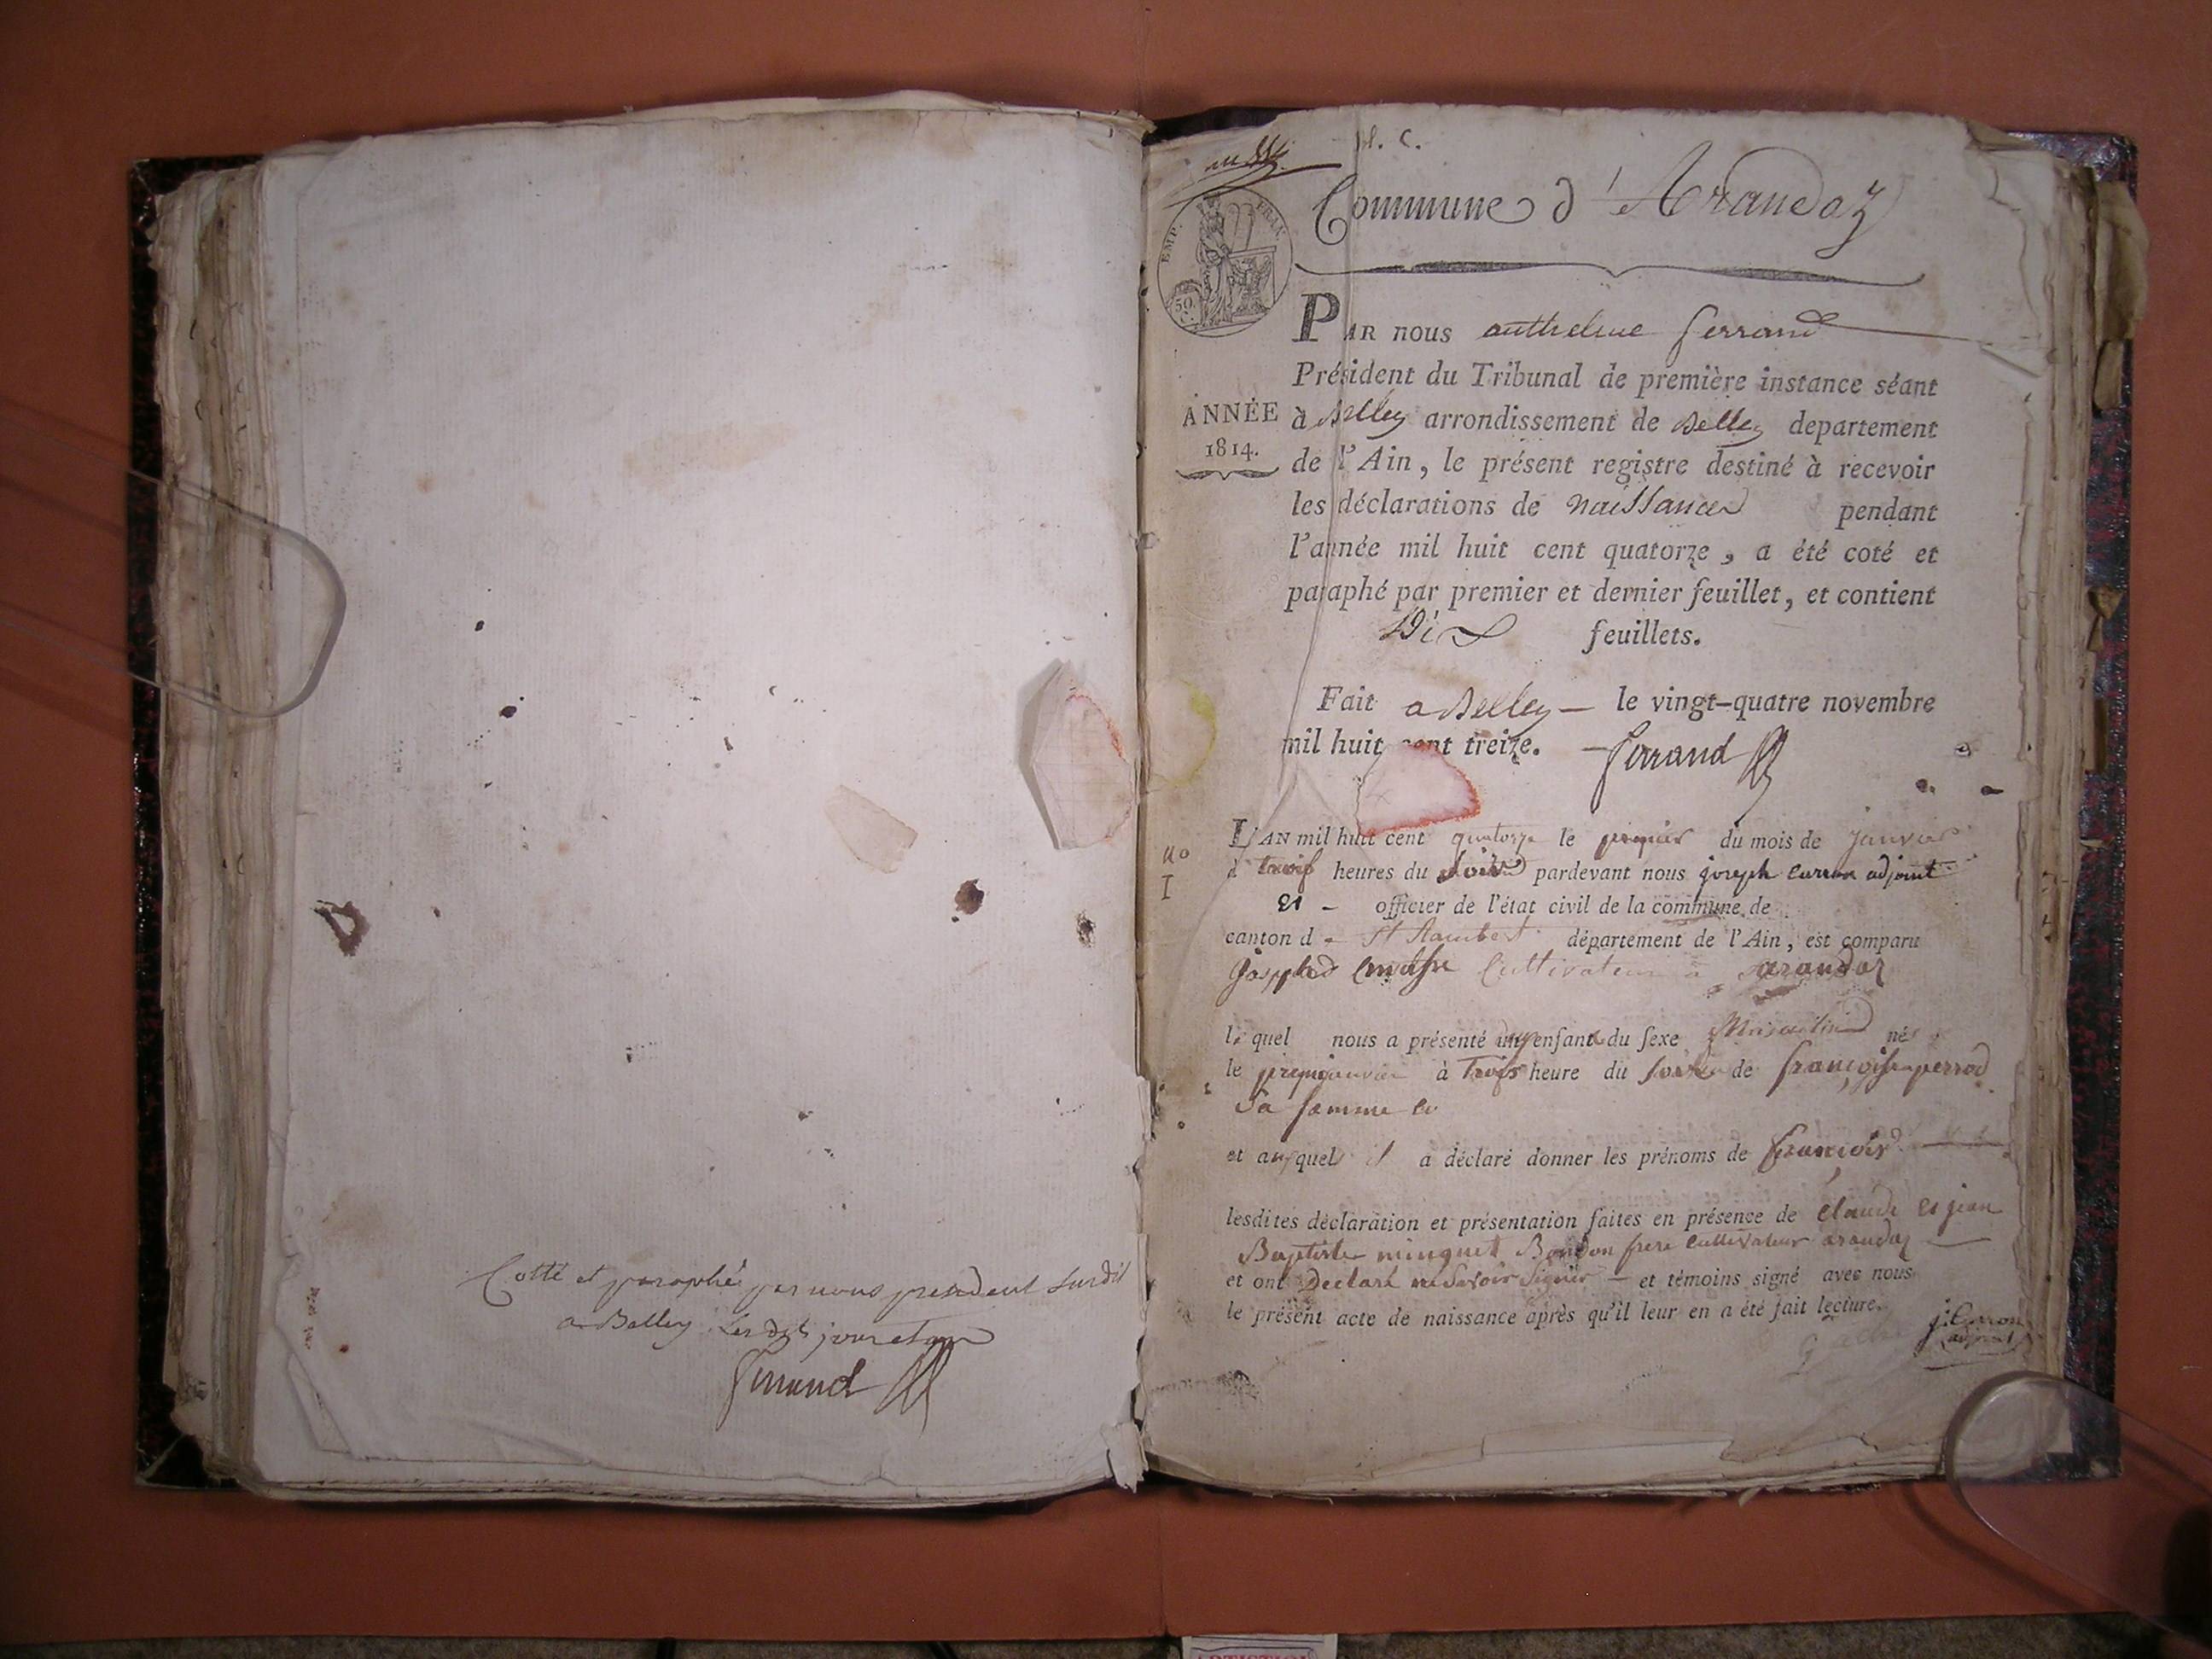 Cotté et paraphé par nous président susdit
a Belley les dits jour et an
Ferrand
Commune d'Arandaz
EMP. FRAN.
50 C.
PAR nous anthelme ferrand
Président du Tribunal de première instance séant
ANNÉE
1814.
à Belley arrondissement de Belley departement
de l'Ain, le présent registre destiné à recevoir
les déclarations de naissances pendant
l'année mil huit cent quatorze, a été coté et
paraphé par premier et dernier feuillet, et contient
Dix feuillets.
Fait a Belley — le vingt-quatre novembre
mil huit cent treize. — ferrand
no
I
L'AN mil huit cent quatorze le premier du mois de janvier
à trois heures du soir pardevant nous joseph carron adjoint
et - officier de l'état civil de la commune de
canton d - St Rambert département de l'Ain, est comparu
cultivateur à arandaz
lequel nous a présenté un enfant du sexe Masculin né
le janvier à Trois heure du soir de françoise perrod
Sa famme et
et auquel il a déclaré donner les prénoms de françois
lesdites déclaration et présentation faites en présence de claude et jean
Baptiste minguet frere cultivateur arandaz —
et ont Declaré ne Savoir Signer — et témoins signé avec nous
le présent acte de naissance après qu'il leur en a été fait lecture.
j. Carron
adjoint